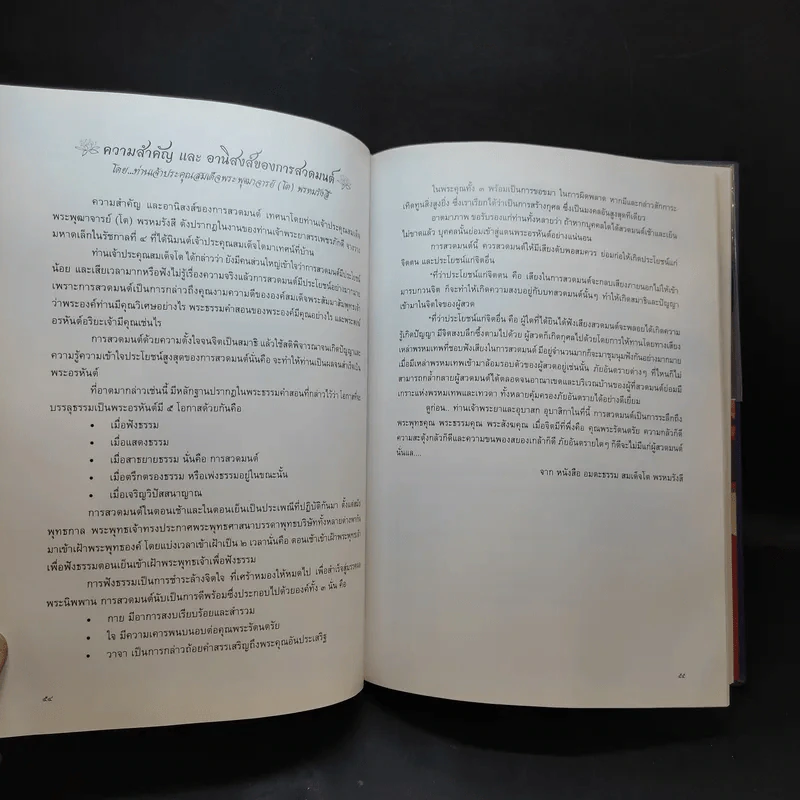 ความสำคัญ และ อานิสงส์ของการสวดมนต์
โดย...ท่านเจ้าประคุณสมเด็จพระพุฒาจารย์ (โต) พรหมรังสี
ความสำคัญ และอานิสงส์ของการสวดมนต์ เทศนาโดยท่านเจ้าประคุณสมเด็จ
พระพุฒาจารย์ (โต) พรหมรังสี ดังปรากฏในงานของท่านเจ้าพระยาสรรเพชรภักดี จางวาง
มหาดเล็กในรัชกาลที่ ๔ ที่ได้นิมนต์เจ้าประคุณสมเด็จโตมาเทศน์ที่บ้าน
ท่านเจ้าประคุณสมเด็จโต ได้กล่าวว่า ยังมีคนส่วนใหญ่เข้าใจว่าการสวดมนต์มีประโยชน์
น้อย และเสียเวลามากหรือฟังไม่รู้เรื่องความจริงแล้วการสวดมนต์มีประโยชน์อย่างมากมาย
เพราะการสวดมนต์เป็นการกล่าวถึงคุณงามความดีขององค์สมเด็จพระสัมมาสัมพุทธเจ้า
ว่าพระองค์ท่านมีคุณวิเศษอย่างไร พระธรรมคำสอนของพระองค์มีคุณอย่างไร และพระสงฆ์
อรหันต์อริยะเจ้ามีคุณเช่นไร
การสวดมนต์ด้วยความตั้งใจจนจิตเป็นสมาธิ แล้วใช้สติพิจารณาจนเกิดปัญญาและ
ความรู้ความเข้าใจประโยชน์สูงสุดของการสวดมนต์นั่นคือ จะทำให้ท่านเป็นผลจนสำเร็จเป็น
พระอรหันต์
ที่อาตมากล่าวเช่นนี้ มีหลักฐานปรากฏในพระธรรมคำสอนที่กล่าวไว้ว่า โอกาสที่จะ
บรรลุธรรมเป็นพระอรหันต์มี ๕ โอกาสด้วยกันคือ
• เมื่อฟังธรรม
• เมื่อแสดงธรรม
• เมื่อสาธยายธรรม นั่นคือ การสวดมนต์
• เมื่อตรึกตรองธรรม หรือเพ่งธรรมอยู่ในขณะนั้น
• เมื่อเจริญวิปัสสนาญาณ
การสวดมนต์ในตอนเช้าและในตอนเย็นเป็นประเพณีที่ปฏิบัติกันมา ตั้งแต่สมัย
พุทธกาล พระพุทธเจ้าทรงประกาศพระพุทธศาสนาบรรดาพุทธบริษัททั้งหลายต่างพากัน
มาเข้าเฝ้าพระพุทธองค์ โดยแบ่งเวลาเข้าเฝ้าเป็น ๒ เวลานั่นคือ ตอนเช้าเข้าเฝ้าพระพุทธเจ้า
เพื่อฟังธรรมตอนเย็นเข้าเฝ้าพระพุทธเจ้าเพื่อฟังธรรม
การฟังธรรมเป็นการชำระล้างจิตใจ ที่เศร้าหมองให้หมดไป เพื่อสำเร็จสู่มรรคผล
พระนิพพาน การสวดมนต์นับเป็นการดีพร้อมซึ่งประกอบไปด้วยองค์ทั้ง ๓ นั่น คือ
• กาย มีอาการสงบเรียบร้อยและสำรวม
• ใจ มีความเคารพนบนอบต่อคุณพระรัตนตรัย
• วาจา เป็นการกล่าวถ้อยคำสรรเสริญถึงพระคุณอันประเสริฐ
๕๔
ในพระคุณทั้ง ๓ พร้อมเป็นการขอขมา ในการผิดพลาด หากมีและกล่าวสักการะ
เทิดทูนสิ่งสูงยิ่ง ซึ่งเราเรียกได้ว่าเป็นการสร้างกุศล ซึ่งเป็นมงคลอันสูงสุดทีเดียว
อาตมาภาพ ขอรับรองแก่ท่านทั้งหลายว่า ถ้าหากบุคคลใดได้สวดมนต์เช้าและเย็น
ไม่ขาดแล้ว บุคคลนั้นย่อมเข้าสู่แดนพระอรหันต์อย่างแน่นอน
การสวดมนต์นี้ ควรสวดมนต์ให้มีเสียงดังพอสมควร ย่อมก่อให้เกิดประโยชน์แก่
จิตตน และประโยชน์แก่จิตอื่น
"ที่ว่าประโยชน์แก่จิตตน คือ เสียงในการสวดมนต์จะกลบเสียงภายนอกไม่ให้เข้า
มารบกวนจิต ก็จะทำให้เกิดความสงบอยู่กับบทสวดมนต์นั้นๆ ทำให้เกิดสมาธิและปัญญา
เข้ามาในจิตใจของผู้สวด
"ที่ว่าประโยชน์แก่จิตอื่น คือ ผู้ใดที่ได้ยินได้ฟังเสียงสวดมนต์จะพลอยได้เกิดความ
รู้เกิดปัญญา มีจิตสงบลึกซึ้งตามไปด้วย ผู้สวดก็เกิดกุศลไปด้วยโดยการให้ทานโดยทางเสียง
เหล่าพรหมเทพที่ชอบฟังเสียงในการสวดมนต์ มีอยู่จำนวนมากก็จะมาชุมนุมฟังกันอย่างมากมาย
เมื่อมีเหล่าพรหมเทพเข้ามาล้อมรอบตัวของผู้สวดอยู่เช่นนั้น ภัยอันตรายต่างๆ ที่ไหนก็ไม่
สามารถกล้ำกลายผู้สวดมนต์ได้ตลอดจนอาณาเขตและบริเวณบ้านของผู้ที่สวดมนต์ย่อมมี
เกราะแห่งพรหมเทพและเทวดา ทั้งหลายคุ้มครองภัยอันตรายได้อย่างดีเยี่ยม
ดูก่อน.. ท่านเจ้าพระยาและอุบาสก อุบาสิกาในที่นี้ การสวดมนต์เป็นการระลึกถึง
พระพุทธคุณ พระธรรมคุณ พระสังฆคุณ เมื่อจิตมีที่พึ่งคือ คุณพระรัตนตรัย ความกลัวก็ดี
ความสะดุ้งกลัวก็ดีและความขนพองสยองเกล้าก็ดี ภัยอันตรายใดๆ ก็ดีจะไม่มีแก่ผู้สวดมนต์
นั่นแล....
จาก หนังสือ อมตะธรรม สมเด็จโต พรหมรังสี
๕๕